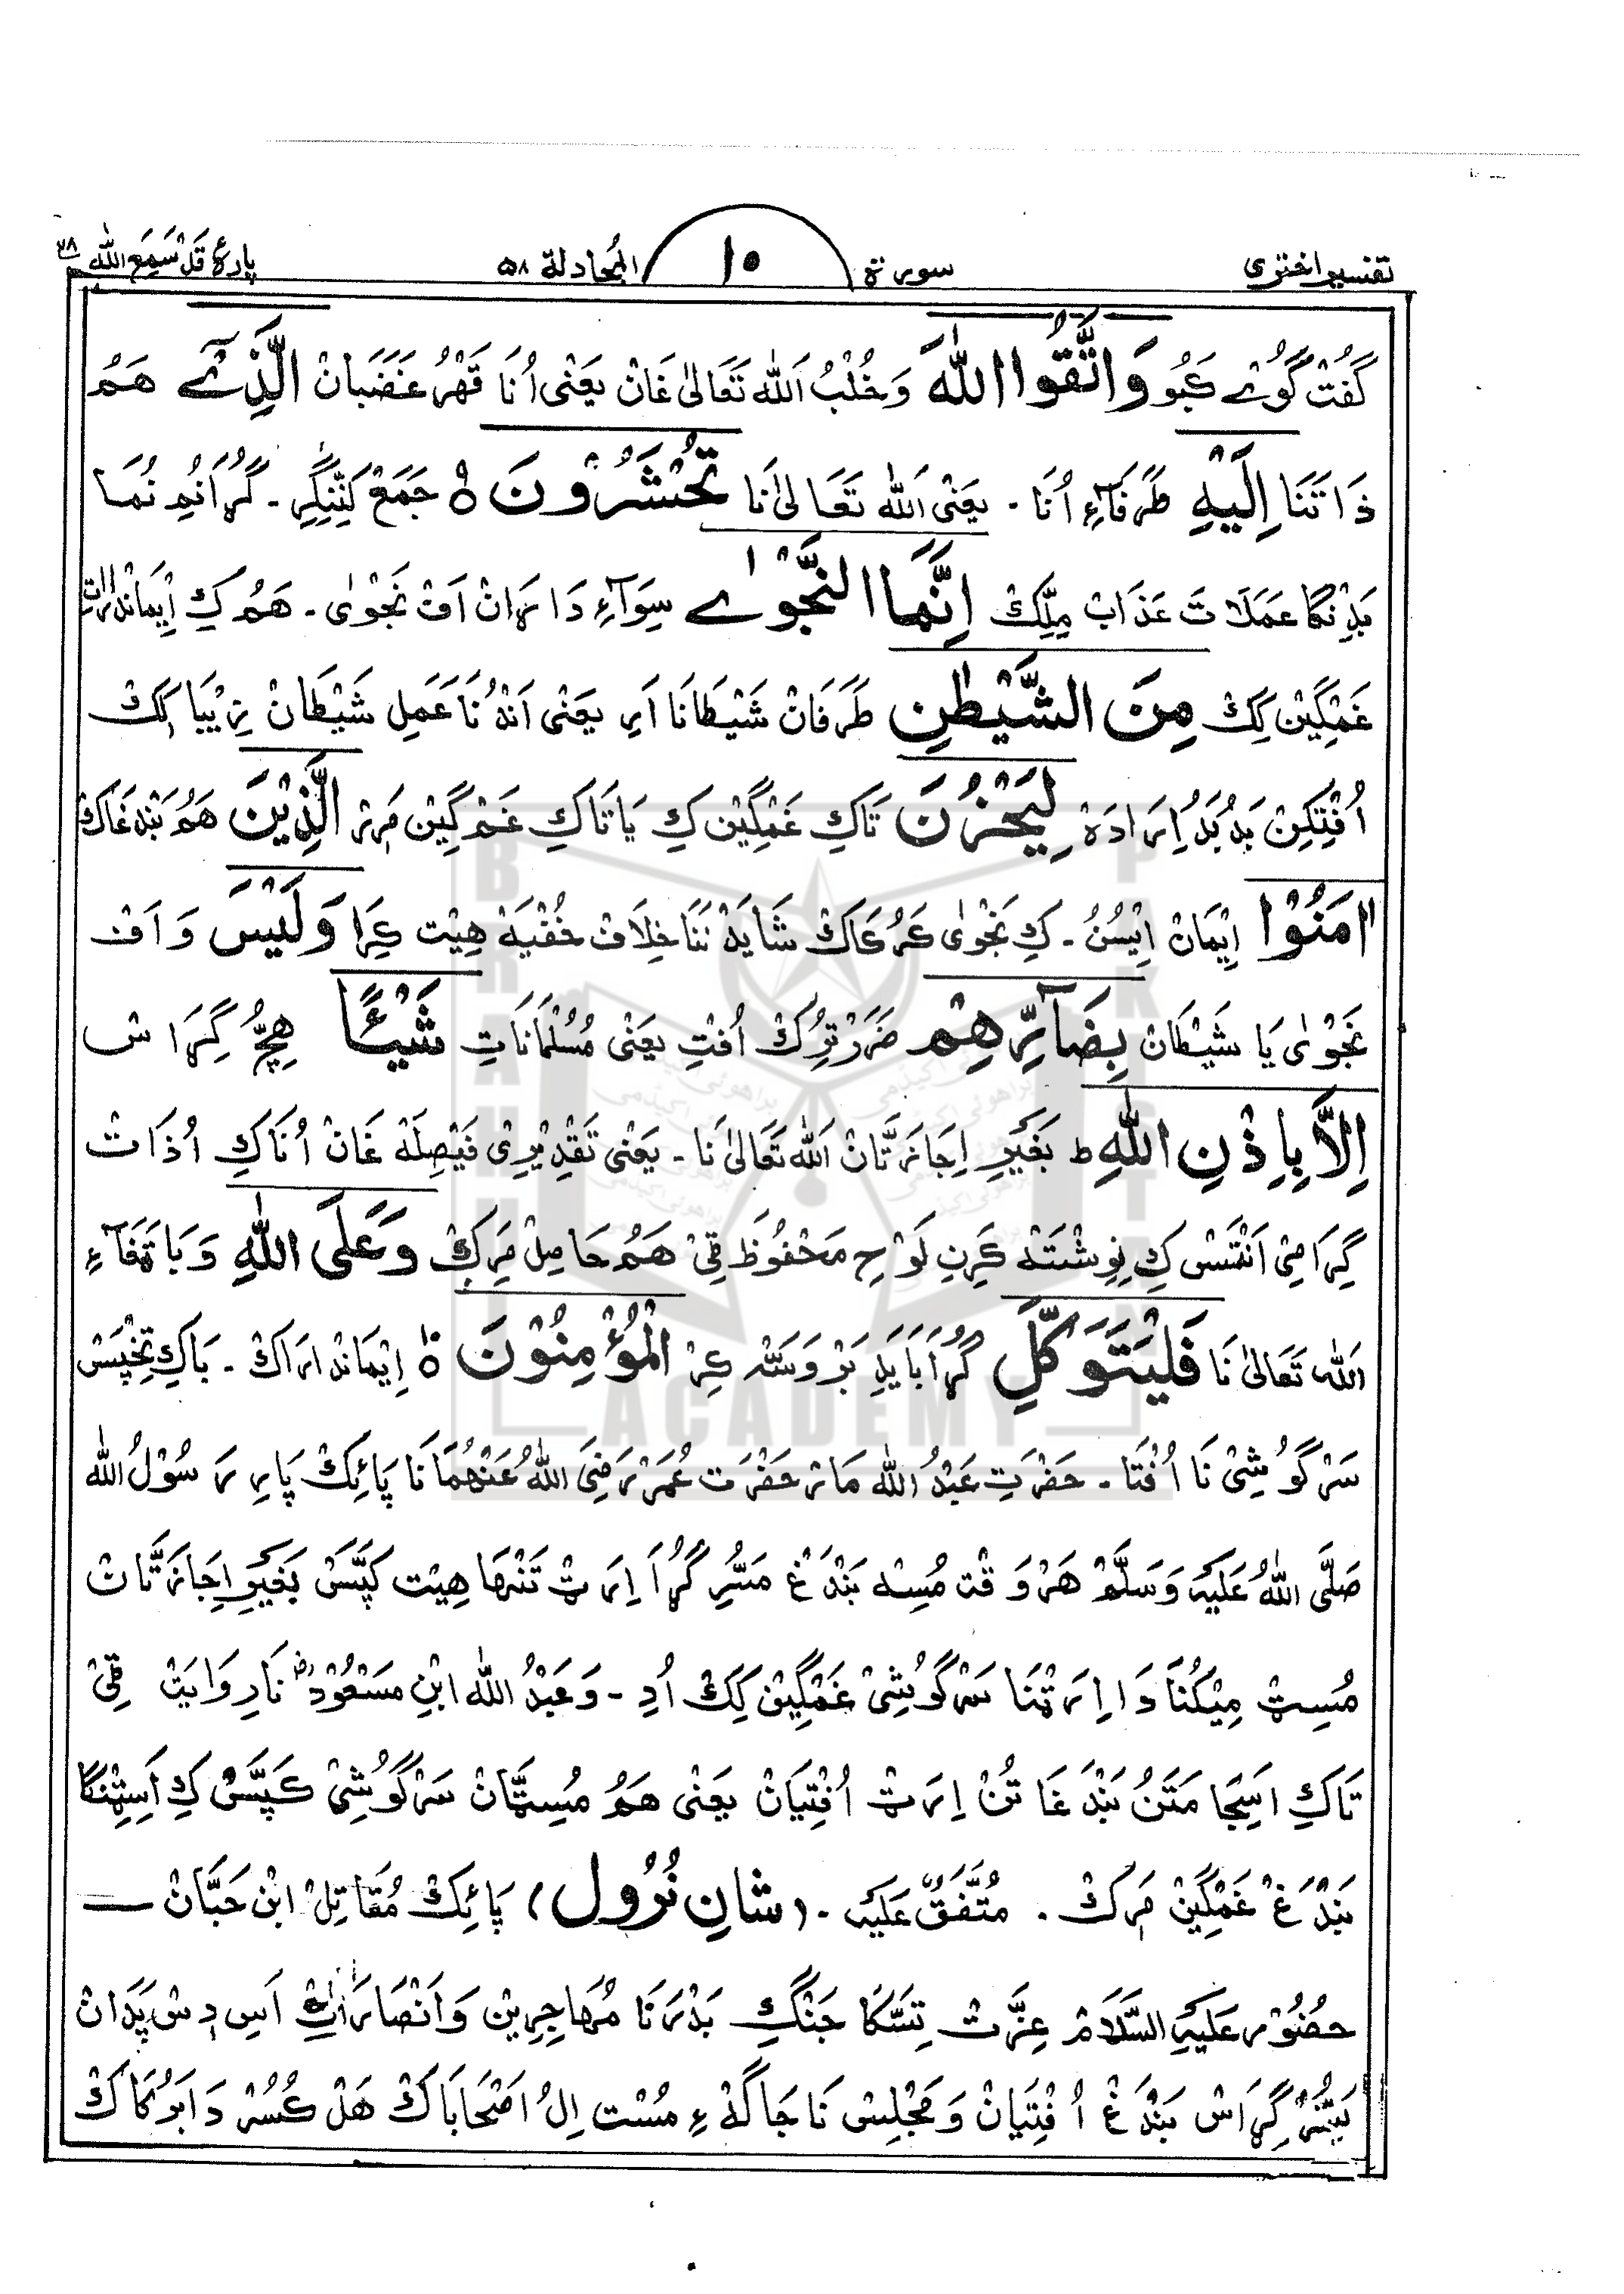 تفسیر اختری سورة ١٠ المجادلة ٥٨ پارۂ قد سمع الله ٢٨
گُفتْ گُوئے کبُو وَاتَّقُوا اللّٰهَ وَ خُلْبُ اَللّٰه تَعَالیٰ غَانْ یَعْنٰی اُنَا قَهْرُ غَضَبَانْ الَّذِیْٓ هَمُ
ذَاتَنَا اِلَیْهِ طَرَفَآءِ اُنَا ۔ یَعْنٰی اَللّٰه تَعَالیٰ نَا تُحْشَرُوْنَ ٥ جَمَعْ کَنِّنِگِرِ ۔ گُڑَا نُمِ نُمَا
بَدِنْگَا عَمَلَاتَ عَذَابْ مِلِّکْ اِنَّمَا النَّجْوٰی سِوَآءِ دَا سَ هَانْ اَفْ نَجْوٰی ۔ هَمُ کِ اِیْمَانْدَارَاتِ
غَمْگِیْن کِکْ مِنَ الشَّیْطٰنِ طَرَفَانْ شَیْطَانَا اَرِ یَعْنٰی اَنْدُنَا عَمَلِ شَیْطَانْ زِیْبَا کِکْ
اُفْتِکِنْ بَدْ بَدُ اِرَادَهْ لِیَحْزُنَ تَاکِ غَمْگِیْن کِ یَا تَاکِ غَمْ گِیْن مَرِرْ الَّذِیْنَ هَمُ بَنْدَغَاکْ
اٰمَنُوْا اِیْمَانْ اِیْسُنُ ۔ کِ نَجْوٰی کَرُکَاکْ شَایَدْ نَنَا خِلَافْ خُفْیَهْ هِیْت کِرَا وَلَیْسَ وَ اَفْ
نَجْوٰی یَا شَیْطَانْ بِضَآرِّهِمْ ضَرَرْ تِرُکْ اُفْتِ یَعْنٰی مُسُلْمَانَاتِ شَیْـًٔا هِچُّ گِرَا س
اِلَّا بِاِذْنِ اللّٰهِ ط بَغَیْرِ اِجَازَتَّانْ اَللّٰه تَعَالیٰ نَا ۔ یَعْنٰی تَقْدِیْرِیْ فَیْصِلَهْ غَانْ اُنَا کِ اُذَاتْ
گِرَامِیْ اَنْتَسْ کِ نِوِشْتَهْ کَرِنِ لَوْحِ مَحْفُوْظ قِیْ هَمُ حَاصِلْ مَرِکْ وَعَلَی اللّٰهِ وَ بَا تَهَفَآءِ
اَللّٰه تَعَالیٰ نَا فَلْیَتَوَکَّلِ گُڑَا بَایَدِ بَرْوَسَهْ کِرْ الْمُؤْمِنُوْنَ ٥ اِیْمَانْدَارَاکْ ۔ بَاکِ تِخْپَسْ
سَرْگُوْشِیْ نَا اُفْتَا ۔ حَضْرَتِ عَبْدُ اللّٰه مَارْ حَضْرَت عُمَرْ رَضِیَ اللّٰهُ عَنْهُمَا نَا پَائِکْ پَارِ رَسُوْلُ اللّٰه
صَلَّی اللّٰهُ عَلَیْهِ وَسَلَّمْ هَرْ وَقْت مُسِهْ بَنْدَغْ مَسُّرِ گُڑَا اِرَٹْ تَنْهَا هِیْت کَپَّسْ بَغَیْرِ اِجَازَتَّانْ
مُسِٹ مِیْکُنَا دَا اِرَ ٹْنَا سَرْگُوْشِیْ غَمْگِیْن کِکْ اُدِ ۔ وَ عَبْدُ اللّٰه ابْنِ مَسْعُوْدْ نَا رِوَایَتْ قِیْ
تَاکِ اَسِجَا مَتَنُ بَنْدَغَا تُنْ اِرَٹ اُفْتِیَانْ یَعْنٰی هَمُ مُسِٹَّانْ سَرْگُوْشِیْ کَپَّسْ کِ اَسِٹِنْگَا
بَنْدَغْ غَمْگِیْن مَرِکْ ۔ مُتَّفَقٌ عَلَیْهِ ۔ (شانِ نُزُول) پَائِکْ مُقَاتِلْ ابْن حَبَّانْ ـــ
حضُوْر عَلَیْهِ السَّلَامْ عِزَّتْ تِسَّکَا جَنْگِ بَدْرَنَا مُهَاجِرِیْن وَ اَنْصَارَاتِ اَسِ دِسْ پَدَانْ
بَسُّرْ گِڑَاسْ بَنْدَغْ اُفْتِیَانْ وَ مَجْلِسْ نَا جَاگَهْ ءِ مُسْت اِلُ اَصْحَابَاکْ هَلْ کُسُرْ دَا بَرُکَاکْ